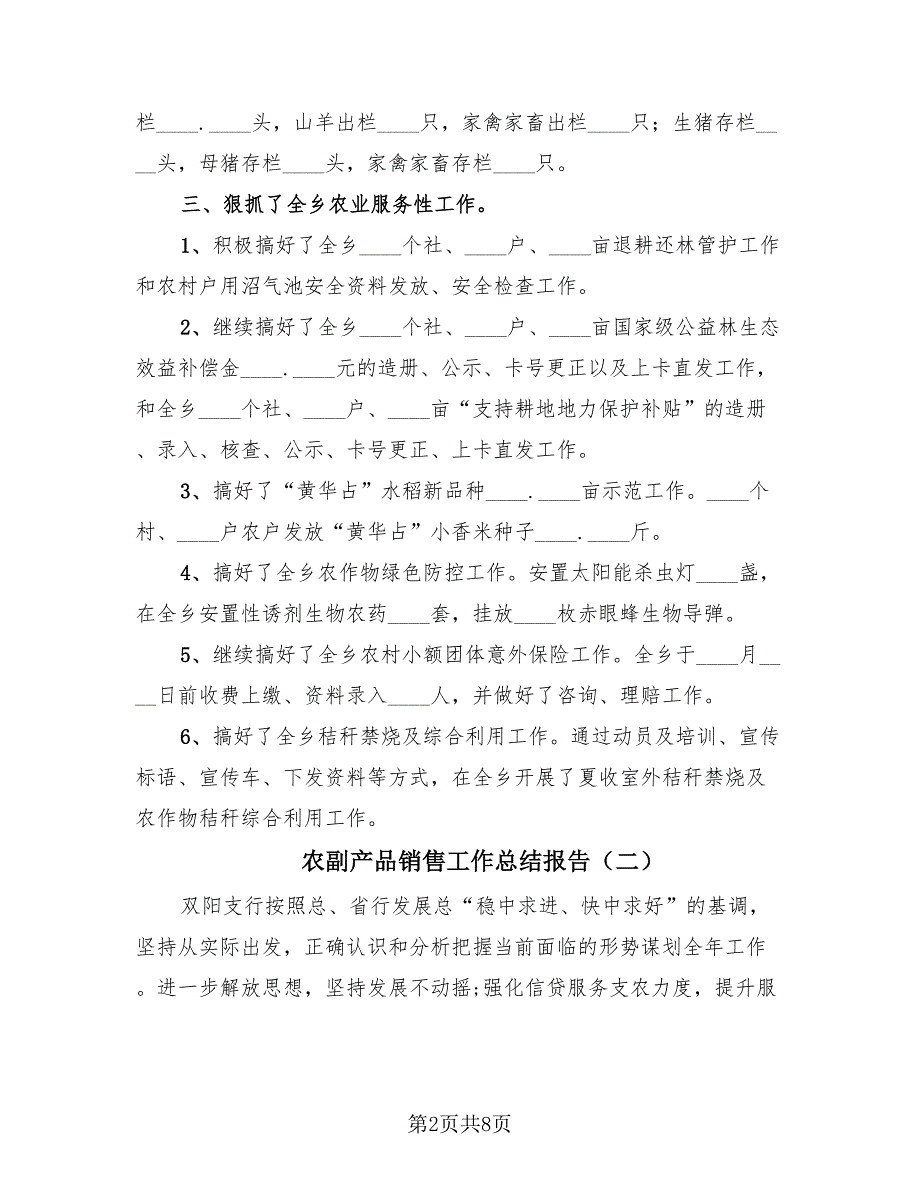 栏____.____头，山羊出栏____只，家禽家畜出栏____只；生猪存栏__
__头，母猪存栏____头，家禽家畜存栏____只。
三、狠抓了全乡农业服务性工作。
1、积极搞好了全乡____个社、____户、____亩退耕还林管护工作
和农村户用沼气池安全资料发放、安全检查工作。
2、继续搞好了全乡____个社、____户、____亩国家级公益林生态
效益补偿金____.____元的造册、公示、卡号更正以及上卡直发工作，
和全乡____个社、____户、____亩“支持耕地地力保护补贴”的造册
、录入、核查、公示、卡号更正、上卡直发工作。
3、搞好了“黄华占”水稻新品种____.____亩示范工作。____个
村、____户农户发放“黄华占”小香米种子____.____斤。
4、搞好了全乡农作物绿色防控工作。安置太阳能杀虫灯____盏，
在全乡安置性诱剂生物农药____套，挂放____枚赤眼蜂生物导弹。
5、继续搞好了全乡农村小额团体意外保险工作。全乡于____月__
__日前收费上缴、资料录入____人，并做好了咨询、理赔工作。
6、搞好了全乡秸秆禁烧及综合利用工作。通过动员及培训、宣传
标语、宣传车、下发资料等方式，在全乡开展了夏收室外秸秆禁烧及
农作物秸秆综合利用工作。
农副产品销售工作总结报告（二）
双阳支行按照总、省行发展总“稳中求进、快中求好”的基调，
坚持从实际出发，正确认识和分析把握当前面临的形势谋划全年工作
。进一步解放思想，坚持发展不动摇;强化信贷服务支农力度，提升服
第2页共8页